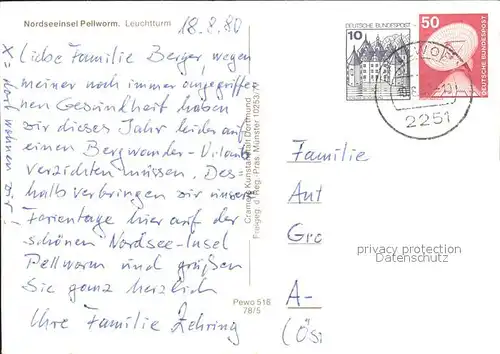 Nordseeinsel Pellworm. Leuchtturm
18.8.80
Liebe Familie Berger, wegen
meiner noch immer angegriffe-
nen Gesundheit haben
wir dieses Jahr leider auf
einen Bergwander-Urlaub
verzichten müssen. Des-
halb verbringen wir unsere
Ferientage hier auf der
schönen Nordsee-Insel
Pellworm und grüßen
Sie ganz herzlich
Ihre Familie Zehring
X = dort wohnen wir!
Cramers Kunstanstalt Dortmund
Freigeg. d. Reg.-Präs. Münster
Pewo 518
78/5
10
DEUTSCHE BUNDESPOST
50
DEUTSCHE BUNDESPOST
2251
Familie
Ant
Gro
A-
(Ös
privacy protection
Datenschutz